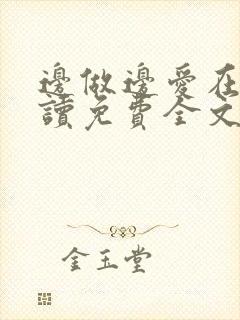 邊做邊愛在
讀免費全文
金玉堂